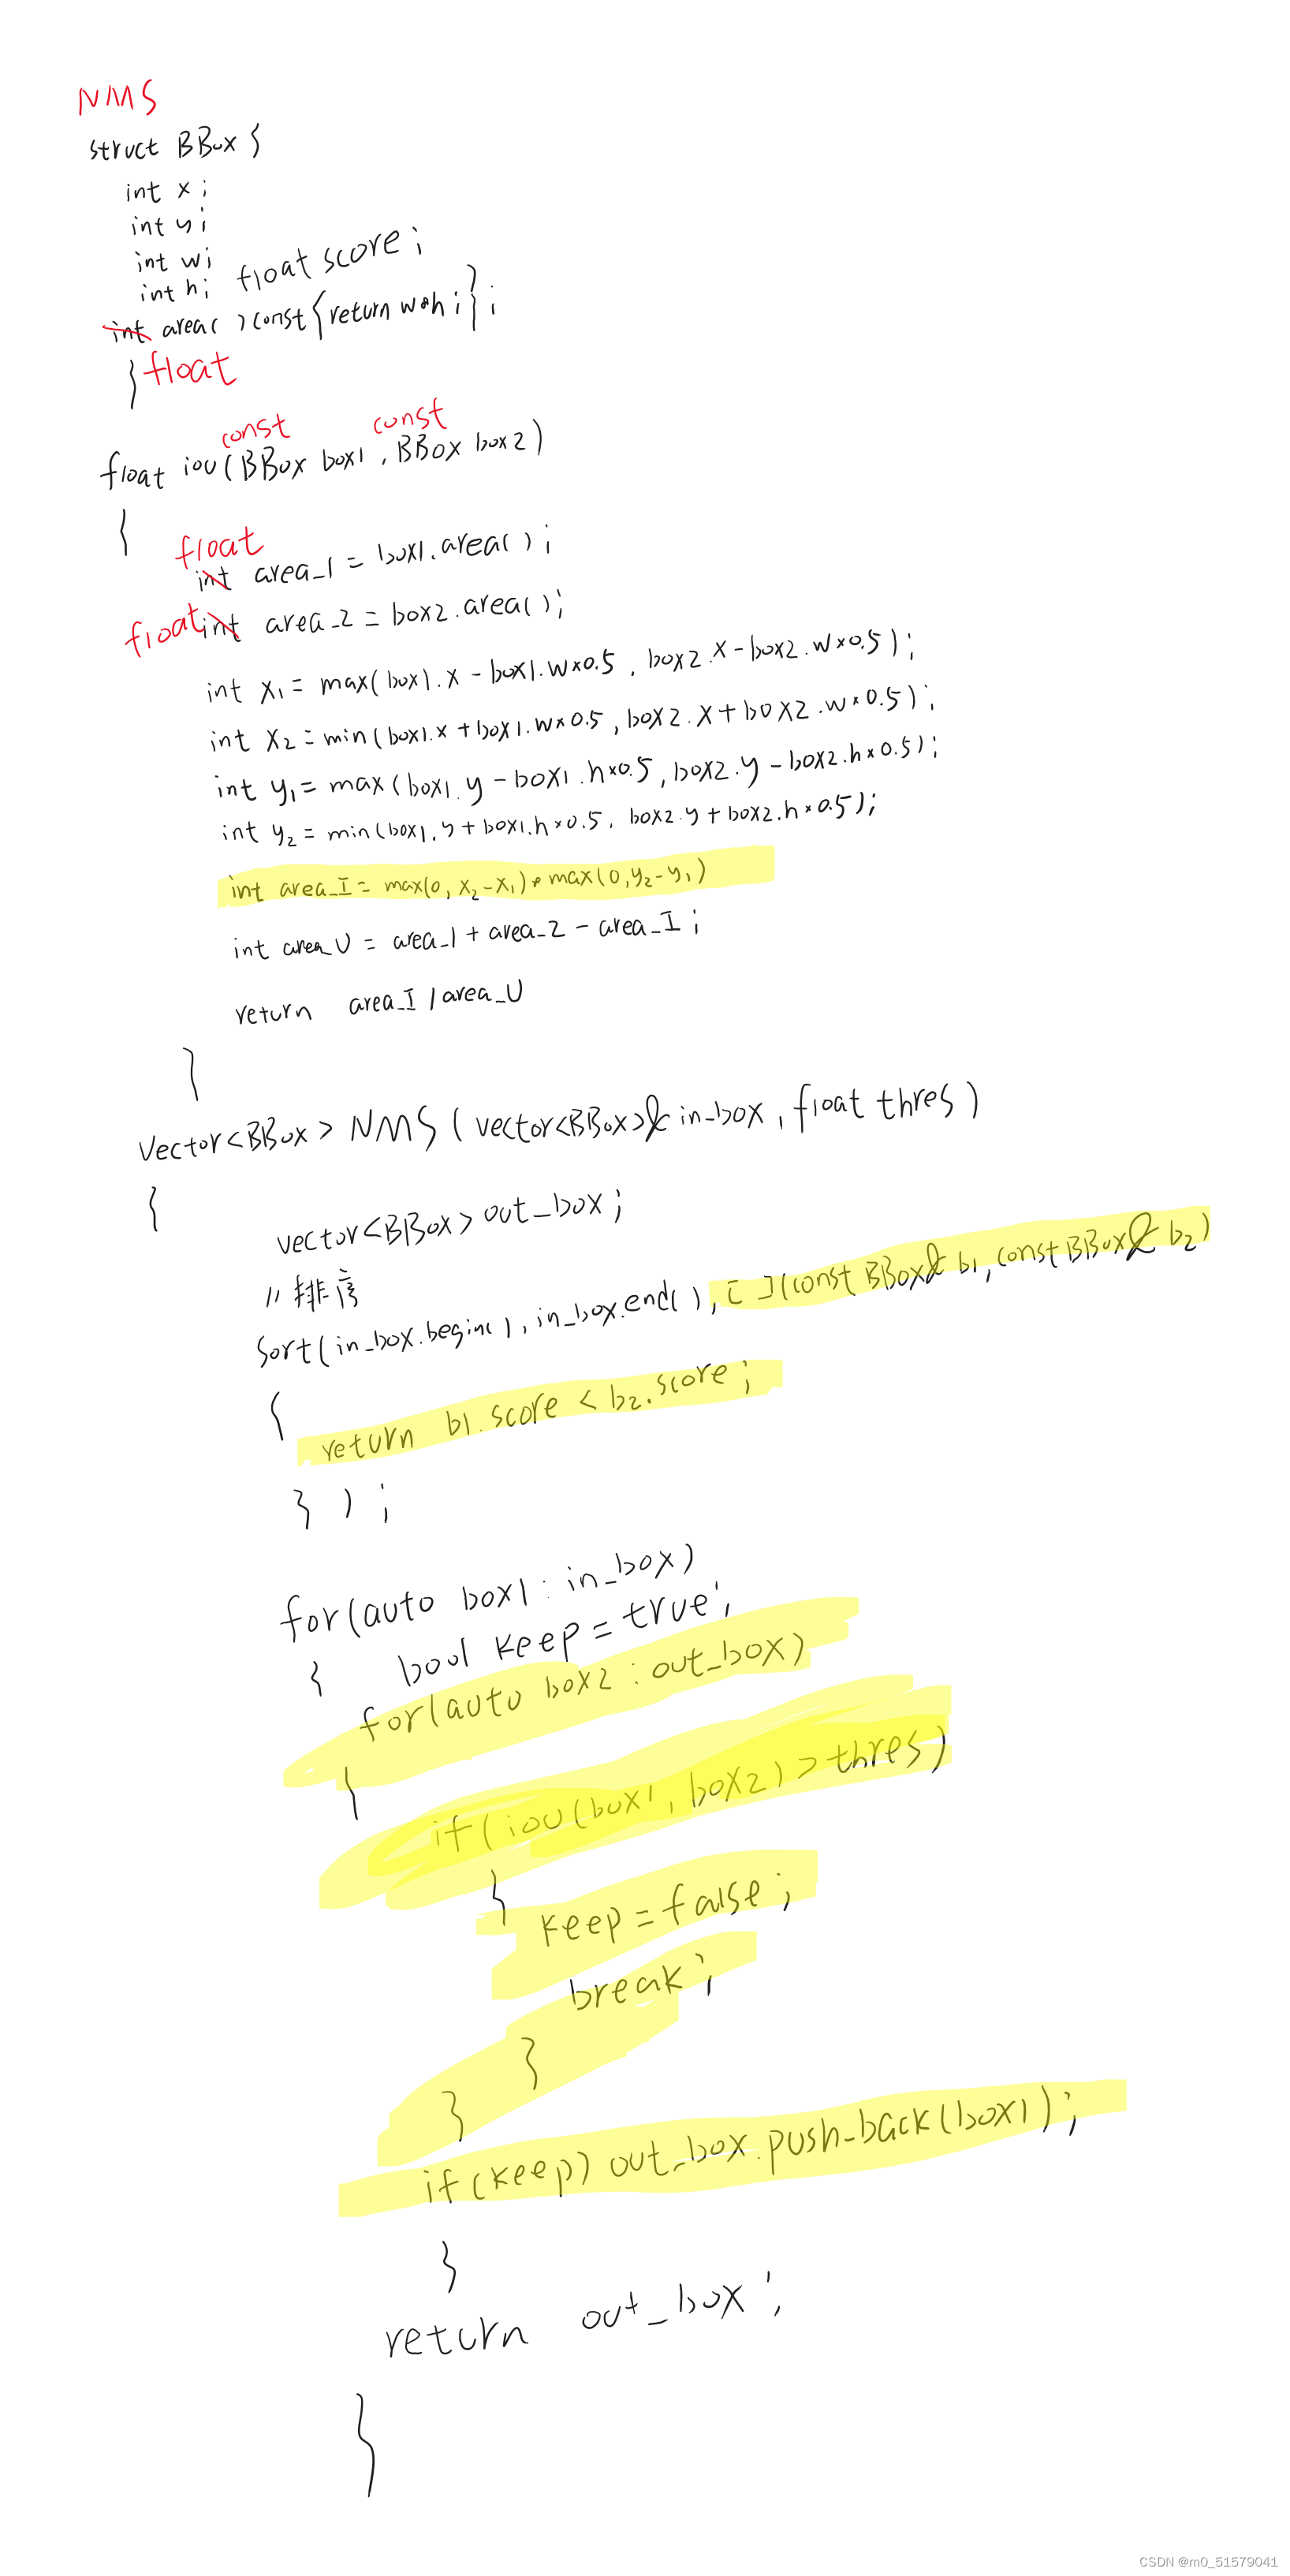 NMS
struct BBox {
int x;
int y;
int w;
int h; float score;
int area( )const{return w*h;};
} float
const const
float iou(BBox box1, BBox box2)
{
float
int area_1 = box1.area( );
float int area_2 = box2.area( );
int x1 = max(box1.x - box1.w*0.5, box2.x - box2.w*0.5);
int x2 = min(box1.x + box1.w*0.5, box2.x + box2.w*0.5);
int y1 = max(box1.y - box1.h*0.5, box2.y - box2.h*0.5);
int y2 = min(box1.y + box1.h*0.5, box2.y + box2.h*0.5);
int area_I = max(0, x2-x1)*max(0, y2-y1)
int area_U = area_1 + area_2 - area_I;
return area_I / area_U
}
vector<BBox> NMS(vector<BBox>& in_box, float thres)
{
vector<BBox> out_box;
//排序
Sort(in_box.begin( ), in_box.end( ), [ ](const BBox& b1, const BBox& b2)
{
return b1.score < b2.score;
} );
for(auto box1 : in_box)
{ bool keep = true;
for(auto box2 : out_box)
{
if(iou(box1, box2) > thres)
{
keep = false;
break;
}
}
if(keep) out_box.push_back(box1);
}
return out_box;
}
CSDN @m0_51579041